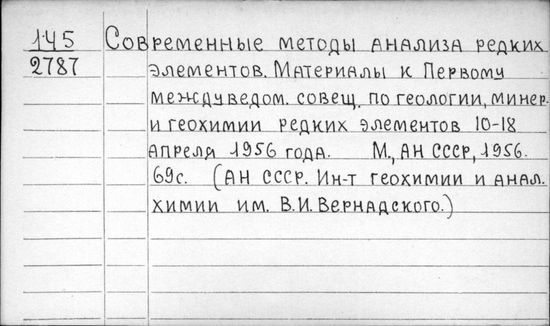 145 Современные методы анализа редких
2787 элементов. Материалы к Первому
междуведом. совещ. по геологии, минер.
и геохимии редких элементов 10-18
апреля 1956 года. М., АН СССР, 1956.
69с. (АН СССР. Ин-т геохимии и анал.
химии им. В.И. Вернадского.)